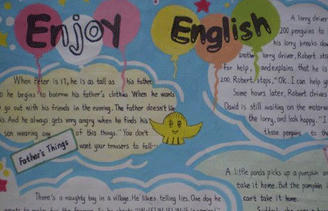 Enjoy English
When Peter is 17, he is as tall as his father,
he begins to borrow his father's clothes. When he wants
go out with his friends in the evening. The father doesn't
And he always gets very angry when he finds his
son wearing any of this things. "You don't
want your trousers to fall-"
Father's Things
There's a naughty boy in a village. He likes telling lies. One day he
A lorry driver
200 penguins to
his lorry breaks down
lorry driver, Robert stops
for help, and explains that he is
200. Robert stops, "Ok. I can help
Some hours later, Robert drives
David is still waiting on the motorw
the lorry, and look happy. "I
those penguins to the
A little panda picks up a pumpkin an
take it home. But the pumpkin
can't take it home.